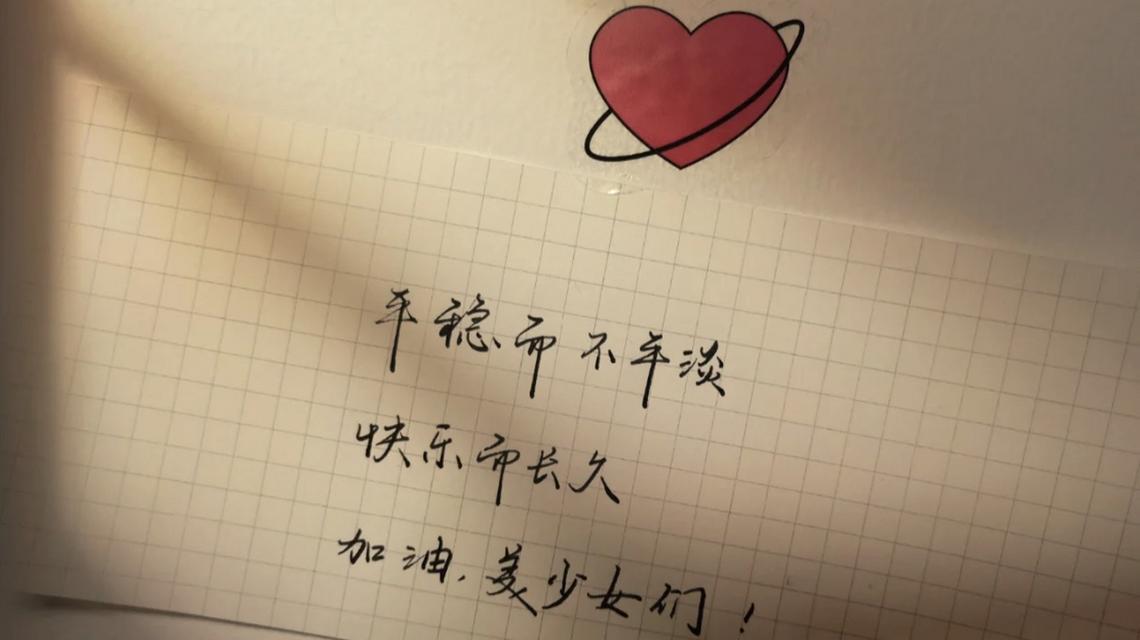 平稳而不平淡
快乐而长久
加油，美少女们！